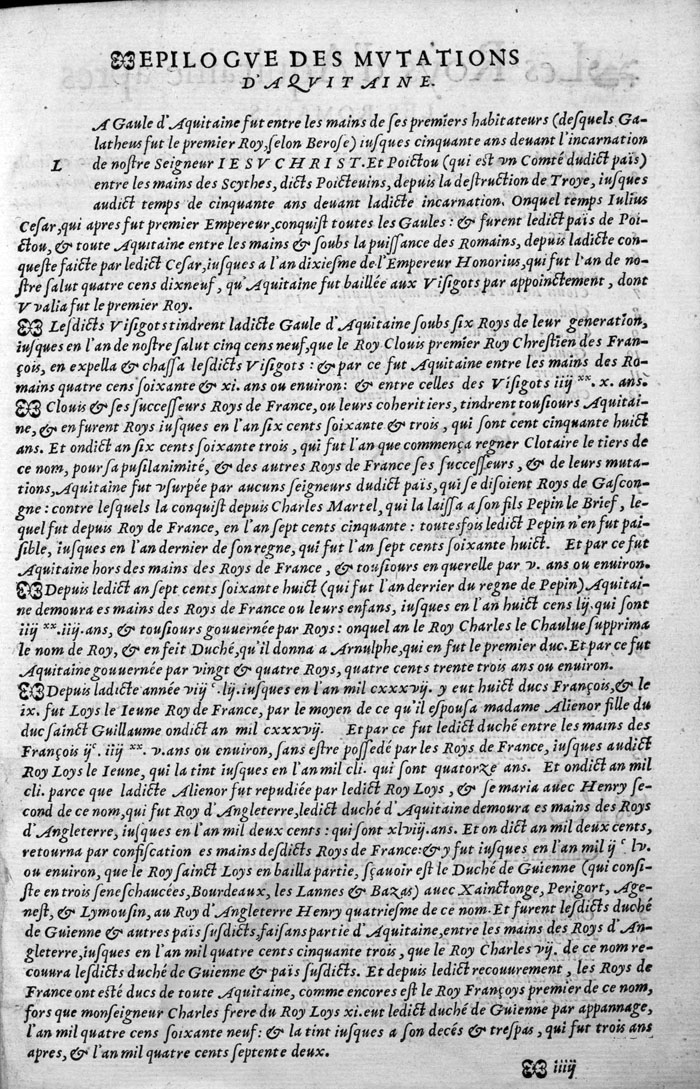 EPILOGVE DES MVTATIONS
D'AQVITAINE.
L
A Gaule d'Aquitaine fut entre les mains de ses premiers habitateurs (desquels Ga-
latheus fut le premier Roy, selon Berose) iusques cinquante ans deuant l'incarnation
de nostre Seigneur IESVCHRIST. Et Poictou (qui est vn Comté dudict païs)
entre les mains des Scythes, dicts Poicteuins, depuis la destruction de Troye, iusques
audict temps de cinquante ans deuant ladicte incarnation. Onquel temps Iulius
Cesar, qui apres fut premier Empereur, conquist toutes les Gaules: & furent ledict païs de Poi-
ctou, & toute Aquitaine entre les mains & soubs la puissance des Romains, depuis ladicte con-
queste faicte par ledict Cesar, iusques a l'an dixiesme de l'Empereur Honorius, qui fut l'an de no-
stre salut quatre cens dixneuf, qu'Aquitaine fut baillée aux Visigots par appoinctement, dont
Vvalia fut le premier Roy.
Lesdicts Visigots tindrent ladicte Gaule d'Aquitaine soubs six Roys de leur generation,
iusques en l'an de nostre salut cinq cens neuf, que le Roy Clouis premier Roy Chrestien des Fran-
çois, en expella & chassa lesdicts Visigots: & par ce fut Aquitaine entre les mains des Ro-
mains quatre cens soixante & xi. ans ou enuiron: & entre celles des Visigots iiij xx. x. ans.
Clouis & ses successeurs Roys de France, ou leurs coheritiers, tindrent tousiours Aquitai-
ne, & en furent Roys iusques en l'an six cents soixante & trois, qui sont cent cinquante huict
ans. Et ondict an six cents soixante trois, qui fut l'an que commença regner Clotaire le tiers de
ce nom, pour sa pusilanimité, & des autres Roys de France ses successeurs, & de leurs muta-
tions, Aquitaine fut vsurpée par aucuns seigneurs dudict païs, qui se disoient Roys de Gascon-
gne: contre lesquels la conquist depuis Charles Martel, qui la laissa a son fils Pepin le Brief, le-
quel fut depuis Roy de France, en l'an sept cents cinquante: toutesfois ledict Pepin n'en fut pai-
sible, iusques en l'an dernier de son regne, qui fut l'an sept cents soixante huict. Et par ce fut
Aquitaine hors des mains des Roys de France, & tousiours en querelle par v. ans ou enuiron.
Depuis ledict an sept cents soixante huict (qui fut l'an derrier du regne de Pepin) Aquitai-
ne demoura es mains des Roys de France ou leurs enfans, iusques en l'an huict cens lij. qui sont
iiij xx. iiij. ans, & tousiours gouuernée par Roys: onquel an le Roy Charles le Chaulue supprima
le nom de Roy, & en feit Duché, qu'il donna a Arnulphe, qui en fut le premier duc. Et par ce fut
Aquitaine gouuernée par vingt & quatre Roys, quatre cents trente trois ans ou enuiron.
Depuis ladicte année viij c. lij. iusques en l'an mil cxxxvij. y eut huict ducs François, & le
ix. fut Loys le Ieune Roy de France, par le moyen de ce qu'il espousa madame Alienor fille du
duc sainct Guillaume ondict an mil cxxxvij. Et par ce fut ledict duché entre les mains des
François ij c. iiij xx. v. ans ou enuiron, sans estre possedé par les Roys de France, iusques audict
Roy Loys le Ieune, qui la tint iusques en l'an mil cli. qui sont quatorze ans. Et ondict an mil
cli. parce que ladicte Alienor fut repudiée par ledict Roy Loys, & se maria auec Henry se-
cond de ce nom, qui fut Roy d'Angleterre, ledict duché d'Aquitaine demoura es mains des Roys
d'Angleterre, iusques en l'an mil deux cents: qui sont xlviij. ans. Et on dict an mil deux cents,
retourna par confiscation es mains desdicts Roys de France: & y fut iusques en l'an mil ij c lv.
ou enuiron, que le Roy sainct Loys en bailla partie, sçauoir est le Duché de Guienne (qui consi-
ste en trois seneschaucées, Bourdeaux, les Lannes & Bazas) auec Xainctonge, Perigort, Age-
nest, & Lymousin, au Roy d'Angleterre Henry quatriesme de ce nom. Et furent lesdicts duché
de Guienne & autres païs susdicts, faisans partie d'Aquitaine, entre les mains des Roys d'An-
gleterre, iusques en l'an mil quatre cents cinquante trois, que le Roy Charles vij. de ce nom re-
couura lesdicts duché de Guienne & païs susdicts. Et depuis ledict recouurement, les Roys de
France ont esté ducs de toute Aquitaine, comme encores est le Roy Françoys premier de ce nom,
fors que monseigneur Charles frere du Roy Loys xi. eut ledict duché de Guienne par appannage,
l'an mil quatre cens soixante neuf: & la tint iusques a son decés & trespas, qui fut trois ans
apres, & l'an mil quatre cents septente deux.
iiij